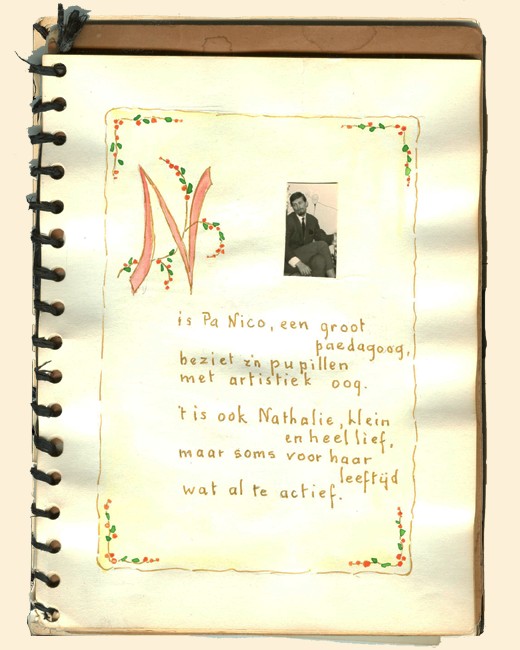 N
is Pa Nico, een groot
paedagoog,
beziet z'n pupillen
met artistiek oog.
't is ook Nathalie, klein
en heel lief,
maar soms voor haar
leeftijd
wat al te actief.